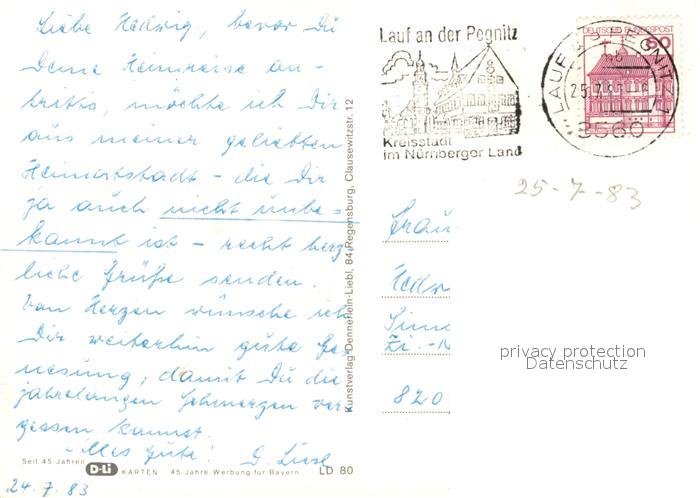 Liebe Hedwig, bevor Du
Deine Heimreise an-
trittst, möchte ich Dir
aus meiner geliebten
Heimatstadt - die Dir
ja auch nicht unbe=
kannt ist - recht herz
liche Grüße senden.
Von Herzen wünsche ich
Dir weiterhin gute Ge
nesung, damit Du die
jahrelangen Schmerzen ver
gessen kannst.
Alles Gute! D. Liesl
Seit 45 Jahren D-Li KARTEN 45 Jahre Werbung für Bayern LD 80
24.7.83
Kunstverlag Dennerlein-Liebl, 84 Regensburg, Clausewitzstr. 12
Lauf an der Pegnitz
Kreisstadt
im Nürnberger Land
DEUTSCHE BUNDESPOST
60
LAUF PEGNITZ
25.7.83
8560
25-7-83
Frau
Hedw
820
privacy protection
Datenschutz